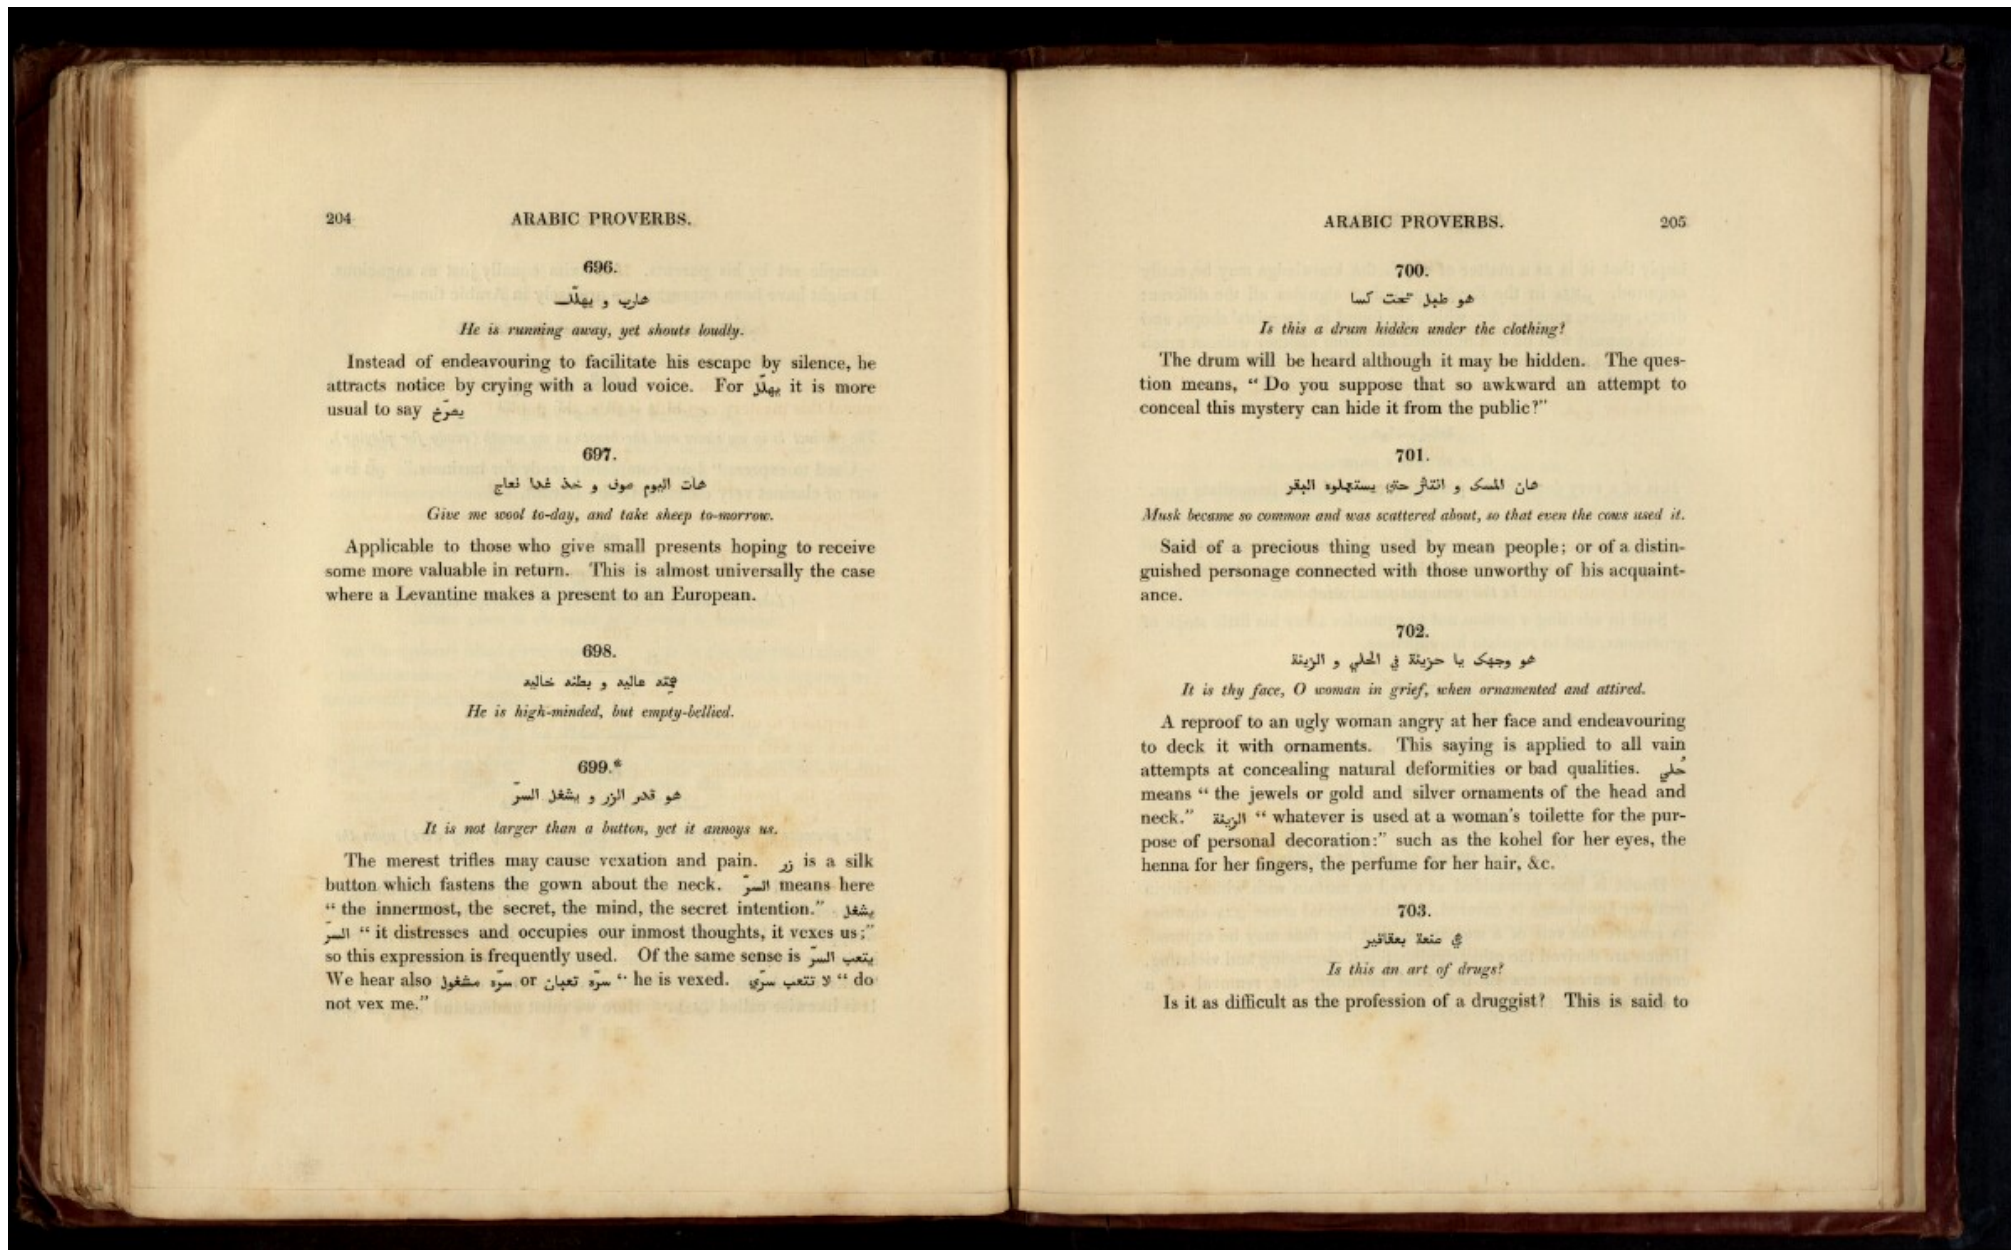 204 ARABIC PROVERBS.
696.
هارب و يهلّل
He is running away, yet shouts loudly.
Instead of endeavouring to facilitate his escape by silence, he
attracts notice by crying with a loud voice. For يهلّل it is more
usual to say يصرّخ
697.
هات اليوم صوف و خذ غدا نعاج
Give me wool to-day, and take sheep to-morrow.
Applicable to those who give small presents hoping to receive
some more valuable in return. This is almost universally the case
where a Levantine makes a present to an European.
698.
همّته عاليه و بطنه خاليه
He is high-minded, but empty-bellied.
699.*
هو قدر الزر و يشغل السرّ
It is not larger than a button, yet it annoys us.
The merest trifles may cause vexation and pain. زر is a silk
button which fastens the gown about the neck. السرّ means here
“ the innermost, the secret, the mind, the secret intention.” يشغل
السرّ “ it distresses and occupies our inmost thoughts, it vexes us;”
so this expression is frequently used. Of the same sense is يتعب السرّ
We hear also سرّه مشغول or سرّه تعبان “ he is vexed. لا تتعب سرّي “ do
not vex me.”
ARABIC PROVERBS. 205
700.
هو طبل تحت كسا
Is this a drum hidden under the clothing?
The drum will be heard although it may be hidden. The ques-
tion means, “ Do you suppose that so awkward an attempt to
conceal this mystery can hide it from the public?”
701.
هان المسك و انتثر حتي يستعملوه البقر
Musk became so common and was scattered about, so that even the cows used it.
Said of a precious thing used by mean people; or of a distin-
guished personage connected with those unworthy of his acquaint-
ance.
702.
هو وجهك يا حزينة في الحلي و الزينة
It is thy face, O woman in grief, when ornamented and attired.
A reproof to an ugly woman angry at her face and endeavouring
to deck it with ornaments. This saying is applied to all vain
attempts at concealing natural deformities or bad qualities. حُلي
means “ the jewels or gold and silver ornaments of the head and
neck.” الزينة “ whatever is used at a woman's toilette for the pur-
pose of personal decoration:” such as the kohel for her eyes, the
henna for her fingers, the perfume for her hair, &c.
703.
هي صنعة بعقاقير
Is this an art of drugs?
Is it as difficult as the profession of a druggist? This is said to